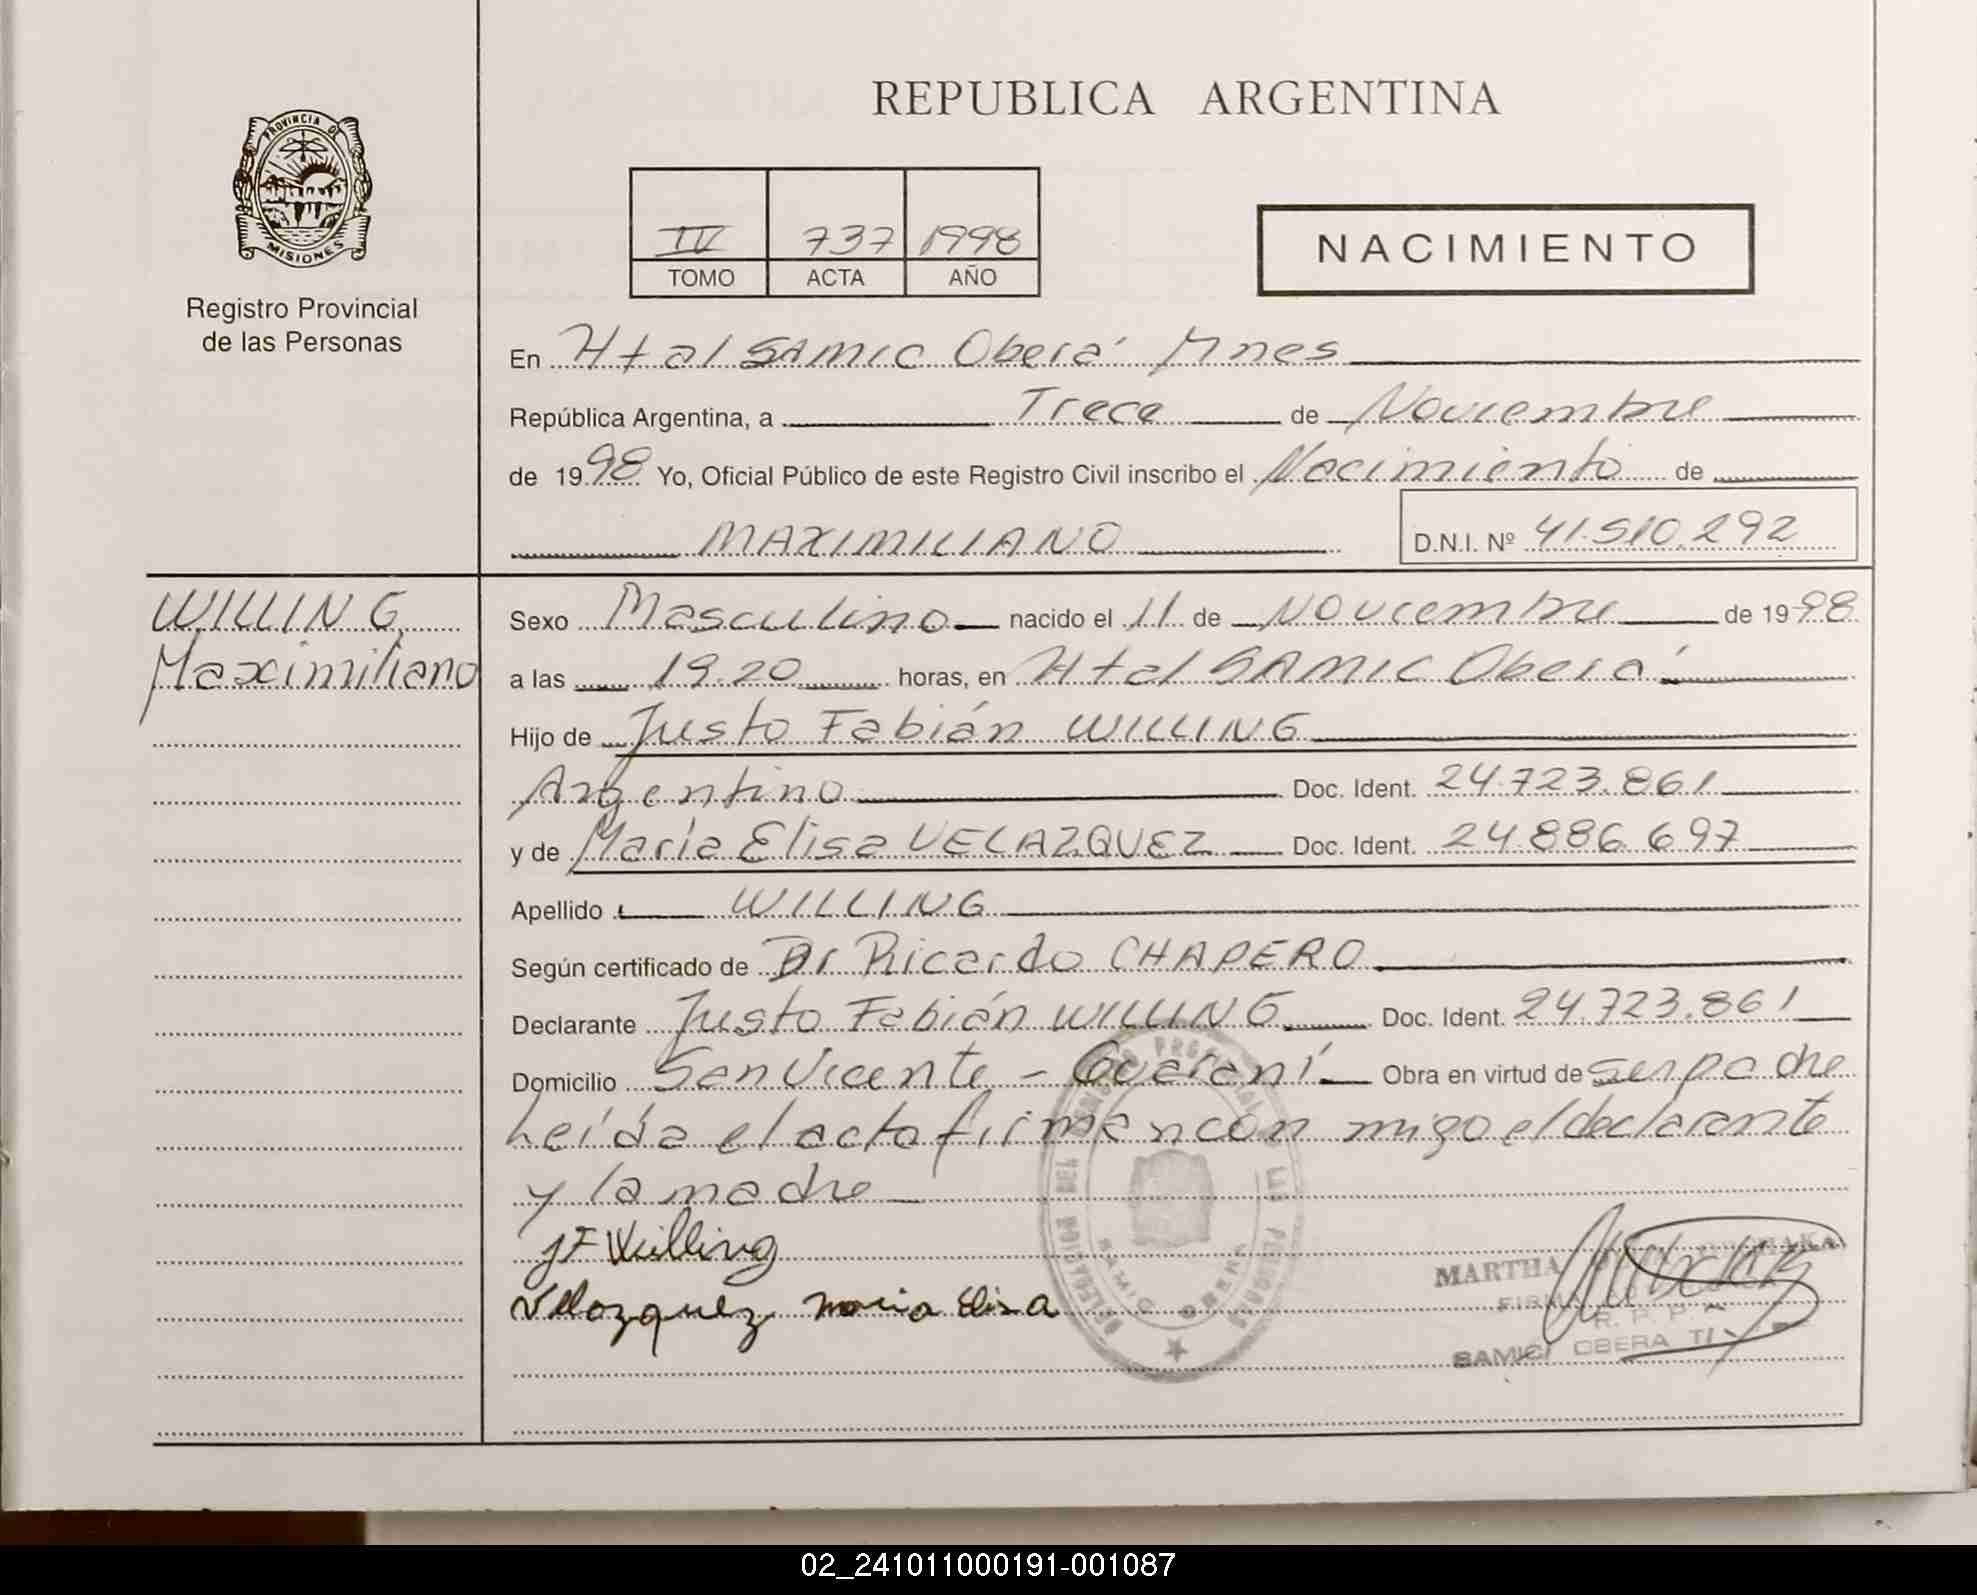 REPUBLICA ARGENTINA
PROVINCIA DE
MISIONES
Registro Provincial
de las Personas
IV 737 1998
TOMO ACTA AÑO
NACIMIENTO
En Htal SAMIC Oberá Mnes
República Argentina, a Trece de Noviembre
de 1998 Yo, Oficial Público de este Registro Civil inscribo el Nacimiento de
MAXIMILIANO D.N.I. Nº 41.510.292
WILLING
Maximiliano
Sexo Masculino nacido el 11 de Noviembre de 1998
a las 19.20 horas, en Htal SAMIC Oberá
Hijo de Justo Fabián WILLING
Argentino Doc. Ident. 24.723.861
y de María Elisa VELAZQUEZ Doc. Ident. 24.886.697
Apellido WILLING
Según certificado de Dr Ricardo CHAPERO
Declarante Justo Fabián WILLING Doc. Ident. 24.723.861
Domicilio San Vicente - Guaraní Obra en virtud de ser padre
Leída el acta firman con migo el declarante
y la madre
JF Willing
Velazquez Maria Elisa
SAMIC OBERA
MARTHA
R. P. P.
SAMIC OBERA
02_241011000191-001087